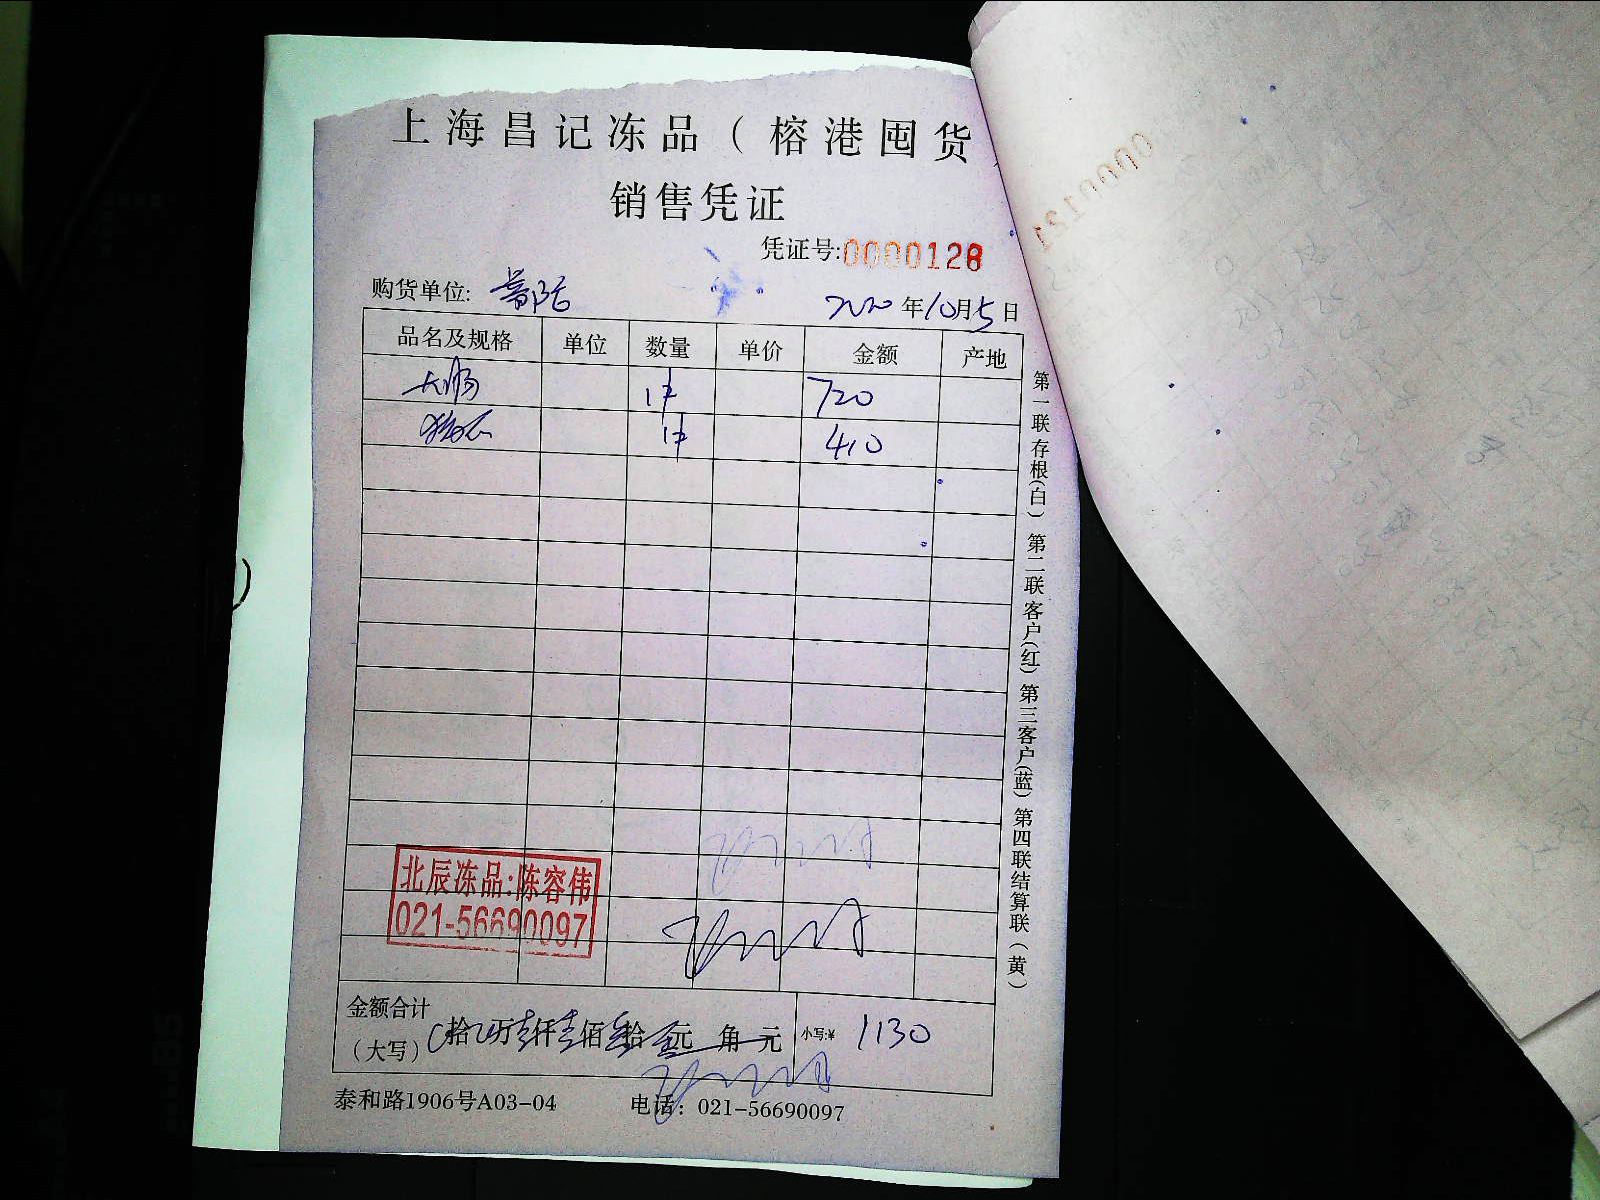 上海昌记冻品（榕港囤货）
销售凭证
凭证号:0000128
购货单位:
2020年10月5日
品名及规格 单位 数量 单价 金额 产地
大肠 1件 720
1件 410
北辰冻品:陈容伟
021-56690097
金额合计
（大写） 拾 万壹仟壹佰叁拾 元 角 元 小写:¥ 1130
泰和路1906号A03-04 电话：021-56690097
第一联存根（白）第二联客户（红）第三客户（蓝）第四联结算联（黄）
0000131